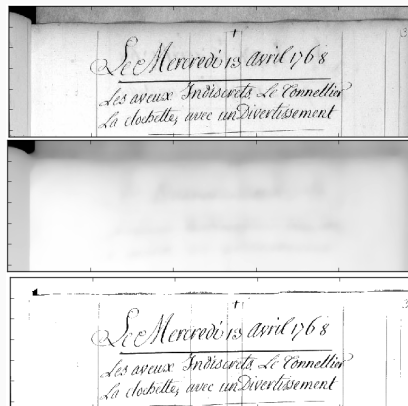 Le Mercredi 13 avril 1768
Les aveux Indiscrets, Le Tonnellier
La clochette, avec un Divertissement
Le Mercredi 13 avril 1768
Les aveux Indiscrets, Le Tonnellier
La clochette, avec un Divertissement